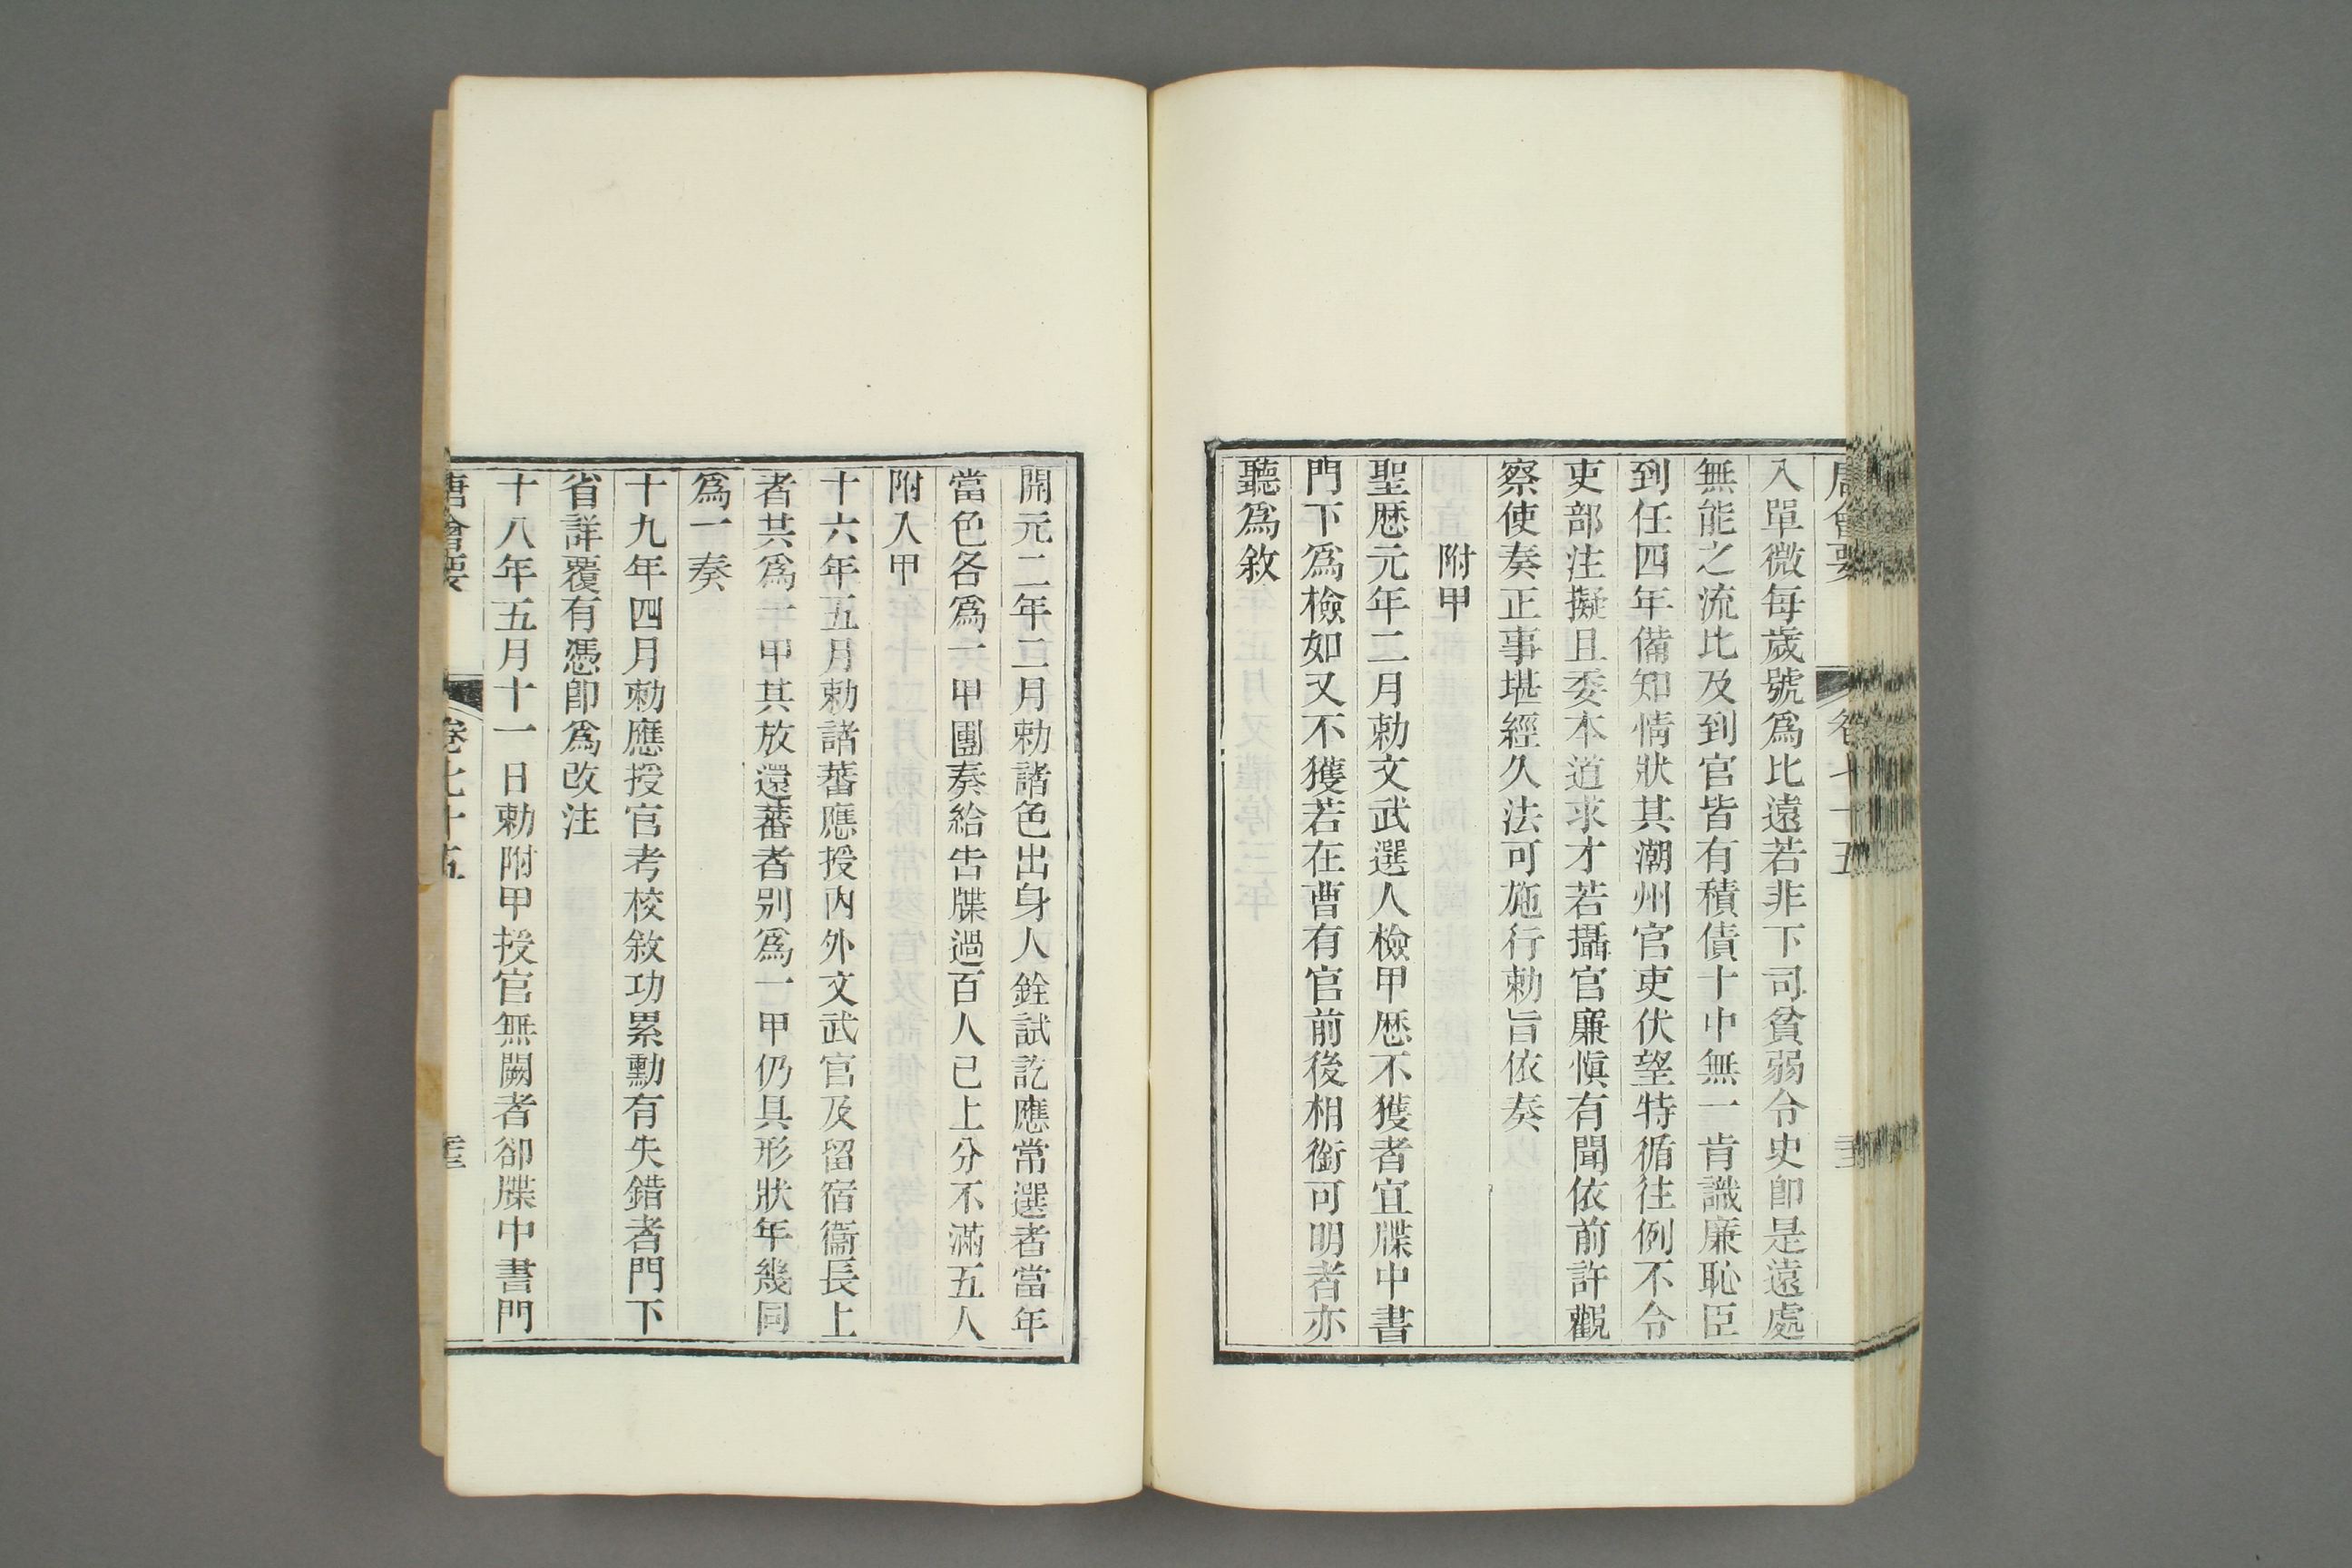 唐會要 卷七十五
入單微每歲號爲比遠若非下司貧弱令史卽是遠處
無能之流比及到官皆有積債十中無一肯識廉恥臣
到任四年備知情狀其潮州官吏伏望特循往例不令
吏部注擬且委本道求才若攝官廉愼有聞依前許觀
察使奏正事堪經久法可施行勅旨依奏
附甲
聖厯元年二月勅文武選人檢甲厯不獲者宜牒中書
門下爲檢如又不獲若在曹有官前後相銜可明者亦
聽爲敘
開元二年二月勅諸色出身人銓試訖應常選者當年
當色各爲一甲團奏給告牒過百人已上分不滿五人
附入甲
十六年五月勅諸蕃應授內外文武官及留宿衞長上
者共爲一甲其放還蕃者别爲一甲仍具形狀年幾同
爲一奏
十九年四月勅應授官考校敘功累勳有失錯者門下
省詳覆有憑卽爲改注
十八年五月十一日勅附甲授官無闕者卻牒中書門
唐會要 卷七十五